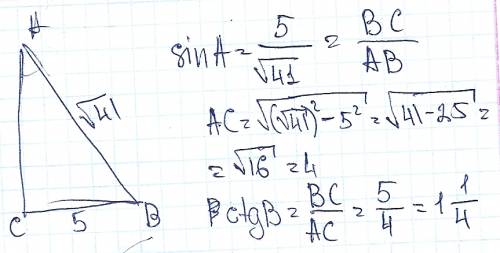 A
√41
C 5 B
sin A = 5/√41 = BC/AB
AC = √((√41)² - 5²) = √(41 - 25) =
= √16 = 4
ctg B = BC/AC = 5/4 = 1 1/4